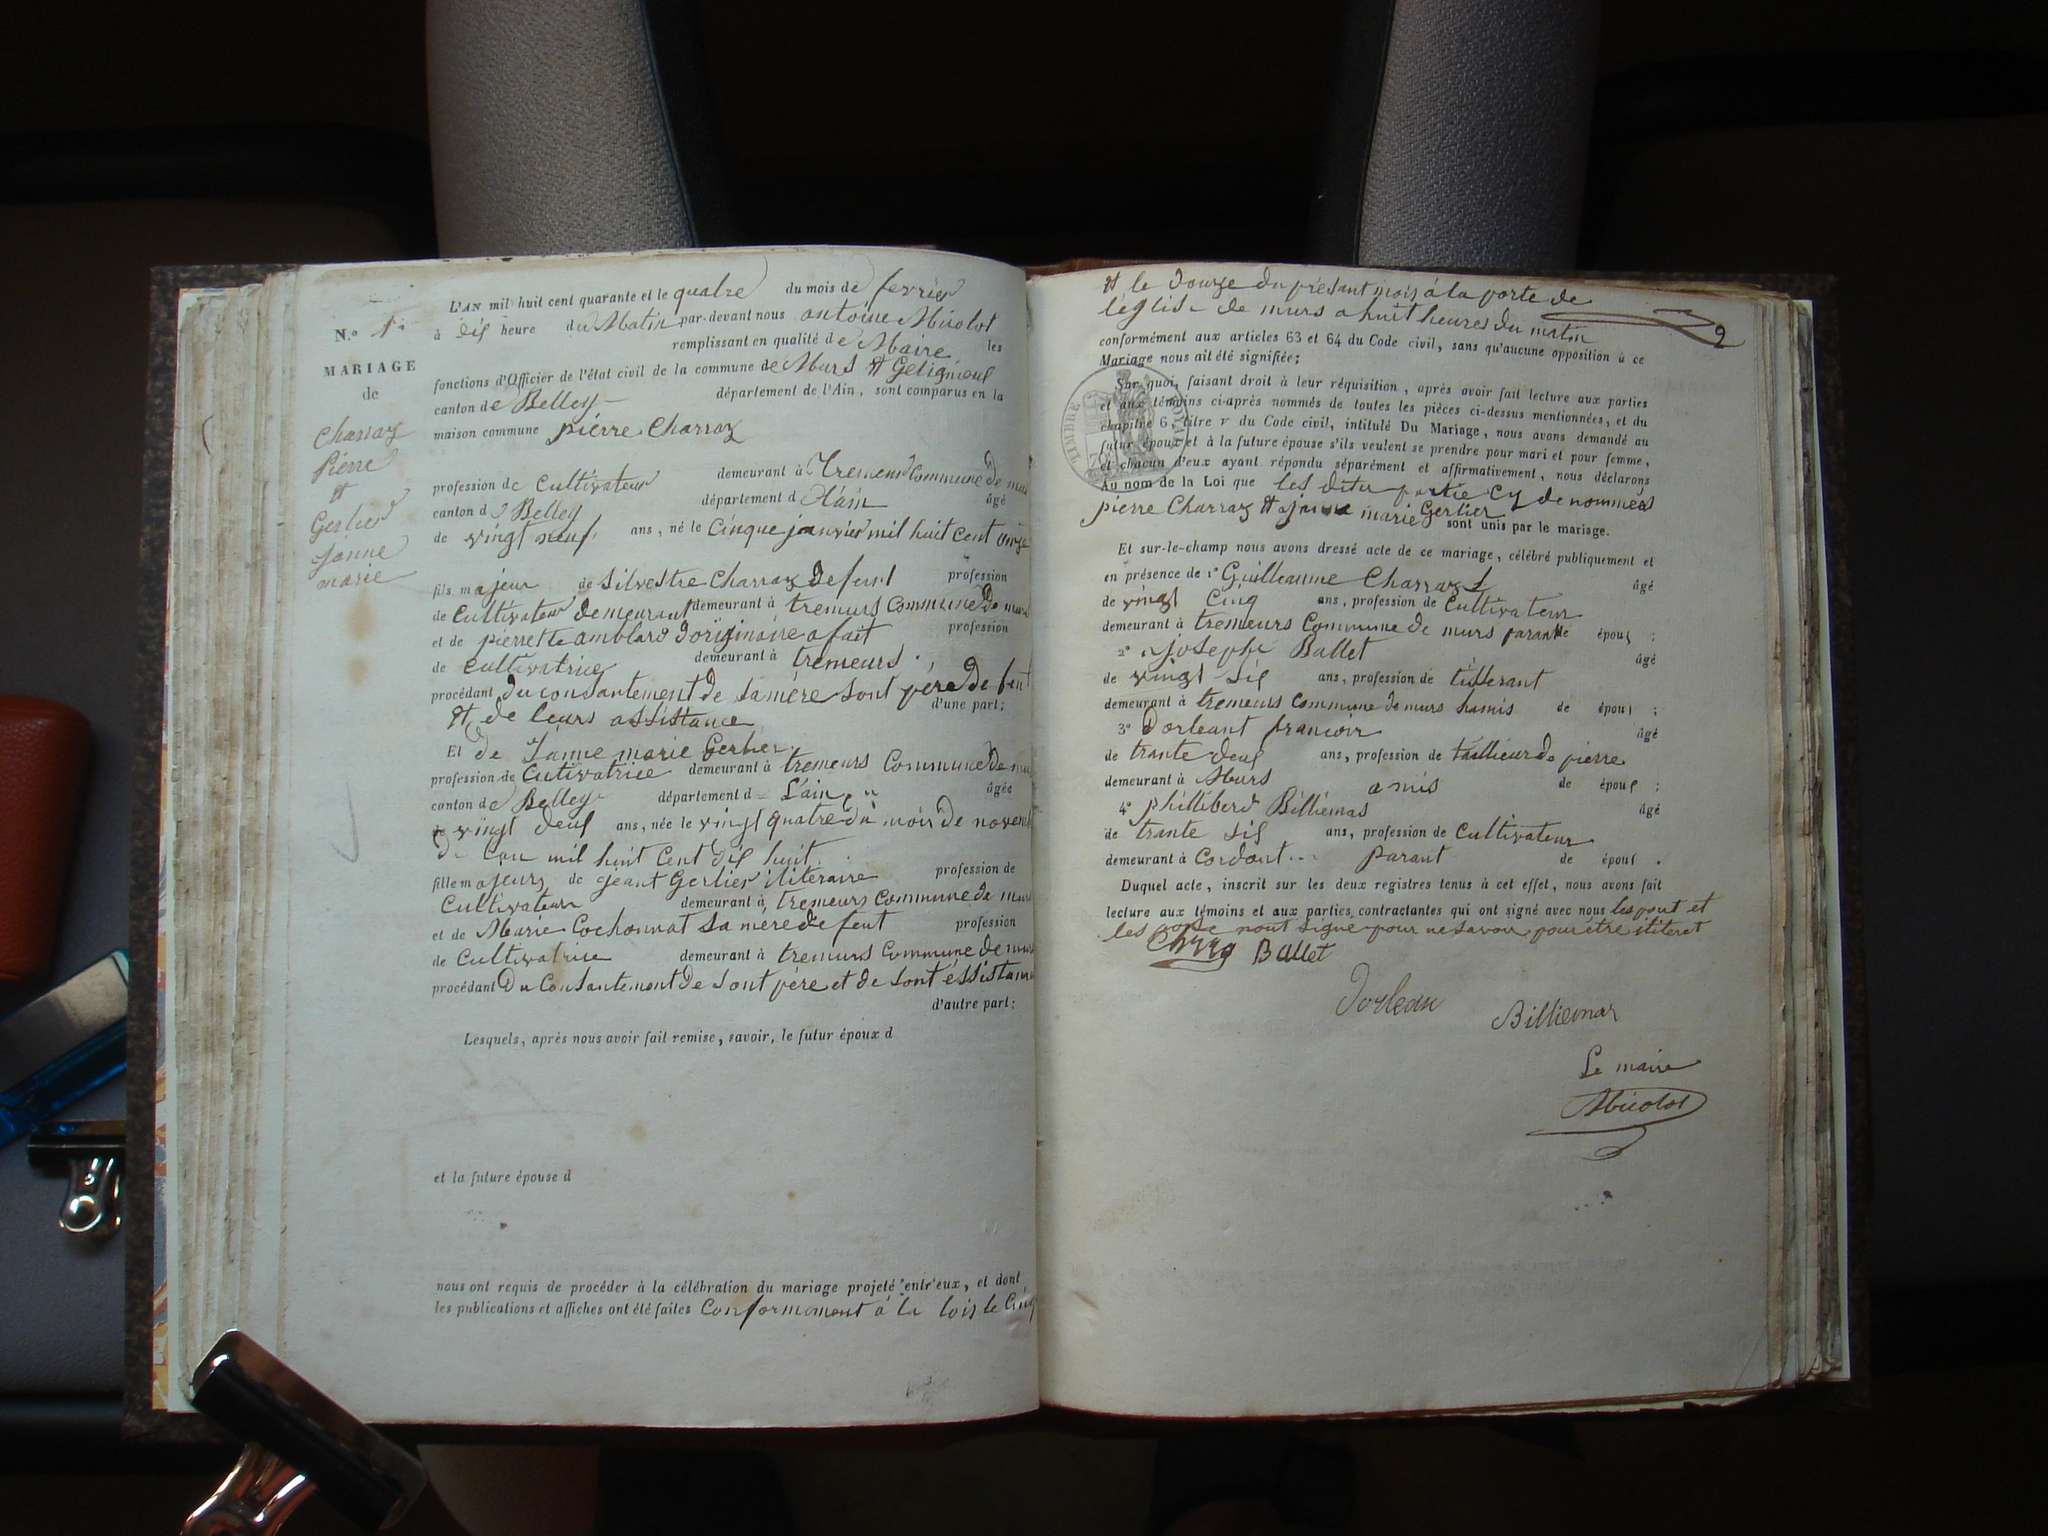 L'AN mil huit cent quarante et le quatre du mois de fevrier
N.o 1.
à dis heure du Matin par-devant nous antoine Micolot
remplissant en qualité de Maire les
MARIAGE
de
fonctions d'Officier de l'état civil de la commune de Murs et Geligneul
canton de Belley département de l'Ain, sont comparus en la
maison commune pierre Charraz
Charraz
Pierre
et
Gerlier
Janne
marie
profession de Cultivateur demeurant à Tremeurs Commune de murs
canton de Belley département d L'ain âgé
de vingt neuf ans, né le Cinque janvier mil huit cent onze
fils majeur de silvestre Charraz defunt profession
de Cultivateur demeurant demeurant à tremeurs Commune de murs
et de pierrette amblard d'originaire a fait profession
de Cultivatrice demeurant à tremeurs
procédant du consantement de sa mère sont père de feut
et de leurs assistance d'une part;
Et de Janne marie Gerlier
profession de Cutivatrice demeurant à tremeurs Commune de murs
canton de Belley département d L'ain âgée
de vingt deus ans, née le vingt quatre du mois de novem
de l'an mil huit Cent dis huit
fille majeure de jeant Gerlier iliteraire profession de
Cultivateur demeurant à tremeurs commune de murs
et de Marie Cochonnat sa mère de feut profession
de Cultivatrice demeurant à tremeurs Commune de murs
procédant Du Consantement De sont père et de sont éssistance
d'autre part:
Lesquels, après nous avoir fait remise, savoir, le futur époux d
et la future épouse d
nous ont requis de procéder à la célébration du mariage projeté entr'eux, et dont
les publications et affiches ont été faites Conformement à la lois le Cinq
et le Douze du présant mois à la porte de
l'église de murs a huit heures du matin
2
conformément aux articles 63 et 64 du Code civil, sans qu'aucune opposition à ce
Mariage nous ait été signifiée;
Sur quoi, faisant droit à leur réquisition, après avoir fait lecture aux parties
et aux témoins ci-après nommés de toutes les pièces ci-dessus mentionnées, et du
chapitre 6, titre v du Code civil, intitulé Du Mariage, nous avons demandé au
futur époux et à la future épouse s'ils veulent se prendre pour mari et pour femme,
et chacun d'eux ayant répondu séparément et affirmativement, nous déclarons
TIMBRE ROYAL
Au nom de la Loi que les dites partie cy de nommés
pierre Charraz et a janne marie Gerlier sont unis par le mariage.
Et sur-le-champ nous avons dressé acte de ce mariage, célébré publiquement et
en présence de 1o Guilleaume Charraz âgé
de vingt Cinq ans, profession de Cultivateur
demeurant à tremeurs Commune de murs parant de épous ;
2o joseph Ballet âgé
de vingt sis ans, profession de tisserant
demeurant à tremeurs Commune de murs hamis de épous ;
3o Dorleant francoir âgé
de trante deus ans, profession de tallieur de pierre
demeurant à Murs amis de épous ;
4o Phillibert Billiemas âgé
de trante sis ans, profession de Cultivateur
demeurant à Cordont parant de épous .
Duquel acte, inscrit sur les deux registres tenus à cet effet, nous avons fait
lecture aux témoins et aux parties contractantes qui ont signé avec nous les pout et
les pouse nont signe pour ne savoir pour être iliteret
Ballet
Dorlean
Billiemar
Le maire
Micolot